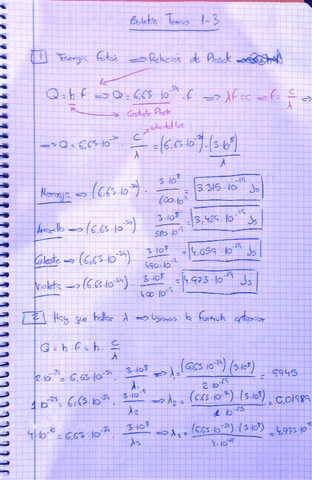 Boletín Temas 1-3
1 Energía fotón ⇒ Relación de Planck ⇒
Q = h · f ⇒ Q = 6,63 · 10⁻³⁴ · f ⇒ λf = c ⇒ f = c/λ ⇒
Constante Planck
⇒ Q = 6,63 · 10⁻³⁴ · c/λ = (6,63 · 10⁻³⁴) · (3 · 10⁸)/λ
Naranja ⇒ (6,63 · 10⁻³⁴) · 3·10⁸/600·10⁻⁹ = 3.315 · 10⁻¹⁹ Js
Amarillo ⇒ (6,63 · 10⁻³⁴) · 3·10⁸/580·10⁻⁹ = 3,429 · 10⁻¹⁹ Js
Celeste ⇒ (6,63 · 10⁻³⁴) · 3·10⁸/490·10⁻⁹ = 4.059 · 10⁻¹⁹ Js
Violeta ⇒ (6,63 · 10⁻³⁴) · 3·10⁸/400·10⁻⁹ = 4,973 · 10⁻¹⁹ Js
2 Hay que hallar λ ⇒ Usamos la fórmula anterior
Q = h · f = h · c/λ
= 6,63 · 10⁻³⁴ · 3·10⁸/λ₁ ⇒ λ = (6,63·10⁻³⁴)(3·10⁸)
= 6,63 · 10⁻³⁴ · λ₂ ⇒ λ₂ = (6,63·10⁻³⁴)(3·10⁸) = 0,01989
= 6,63 · 10⁻³⁴ · 3·10⁸/λ₃ ⇒ λ₃ = (6,63·10⁻³⁴)(3·10⁸)